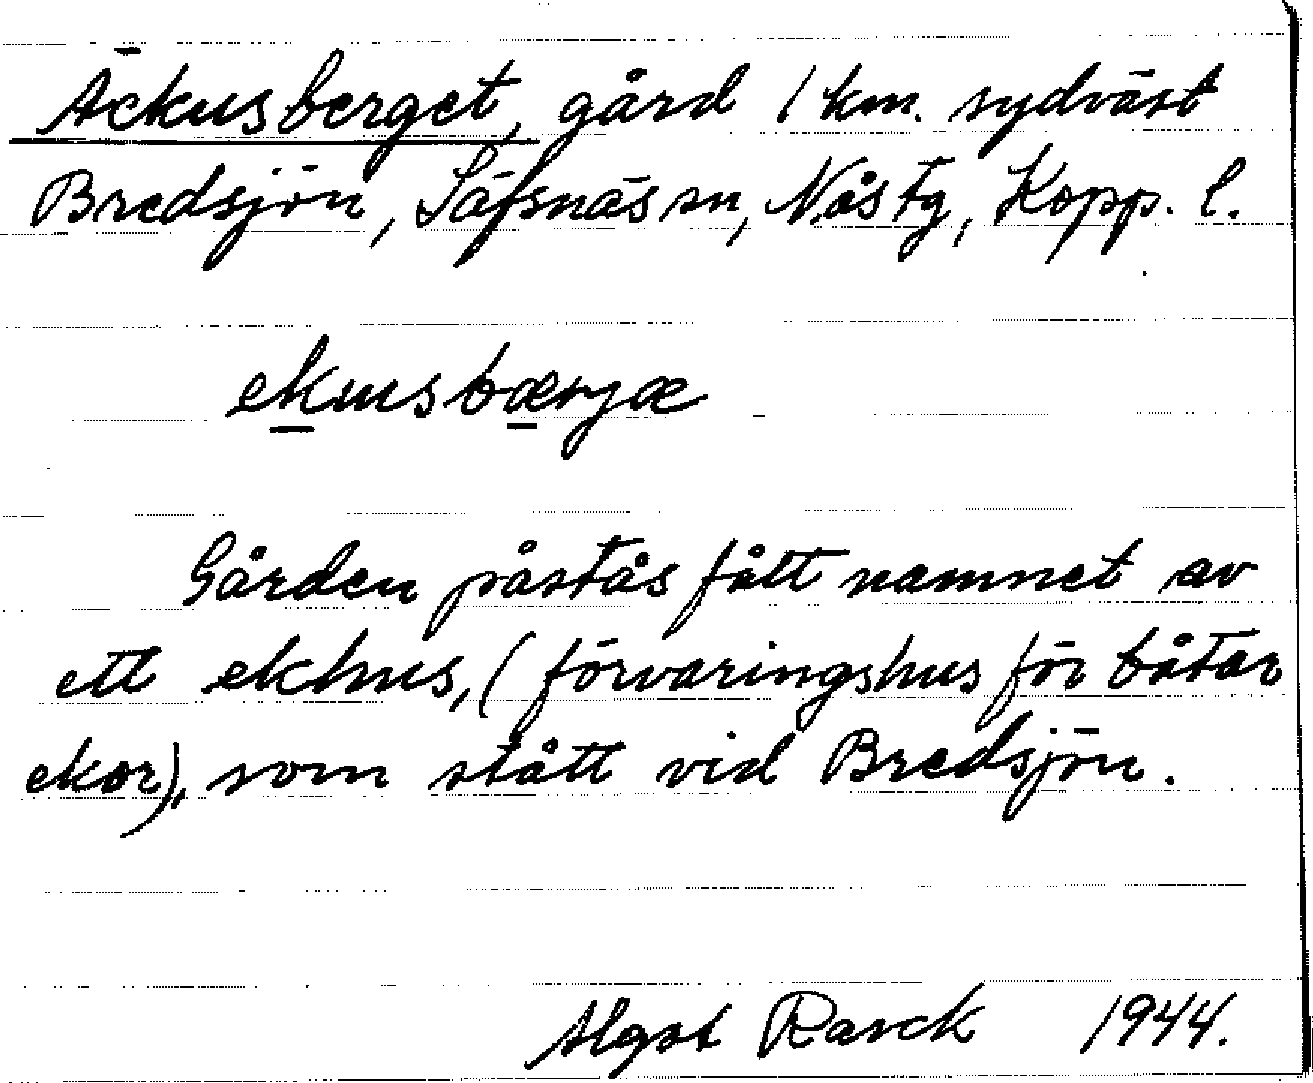 Äckusberget, gård 1 km. sydväst
Bredsjön, Säfsnäs sn, Nås tg, Kopp. l.
ekusbærjæ
Gården påstås fått namnet av
ett ekhus, (förvaringshus för båtar
ekor), som stått vid Bredsjön.
Algot Rarck 1944.